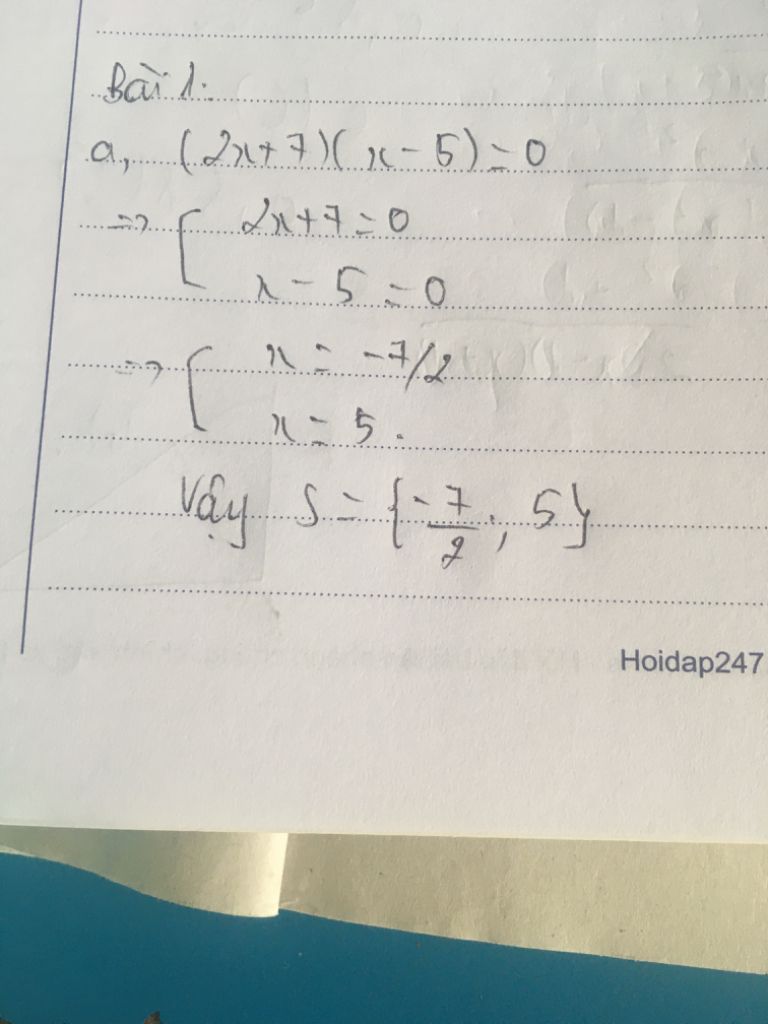 Bài 1:
a, (2x+7)(x-5)=0
=> [ 2x+7=0
x-5=0
=> [ x = -7/2
x = 5.
Vậy S = {-7/2; 5}
Hoidap247